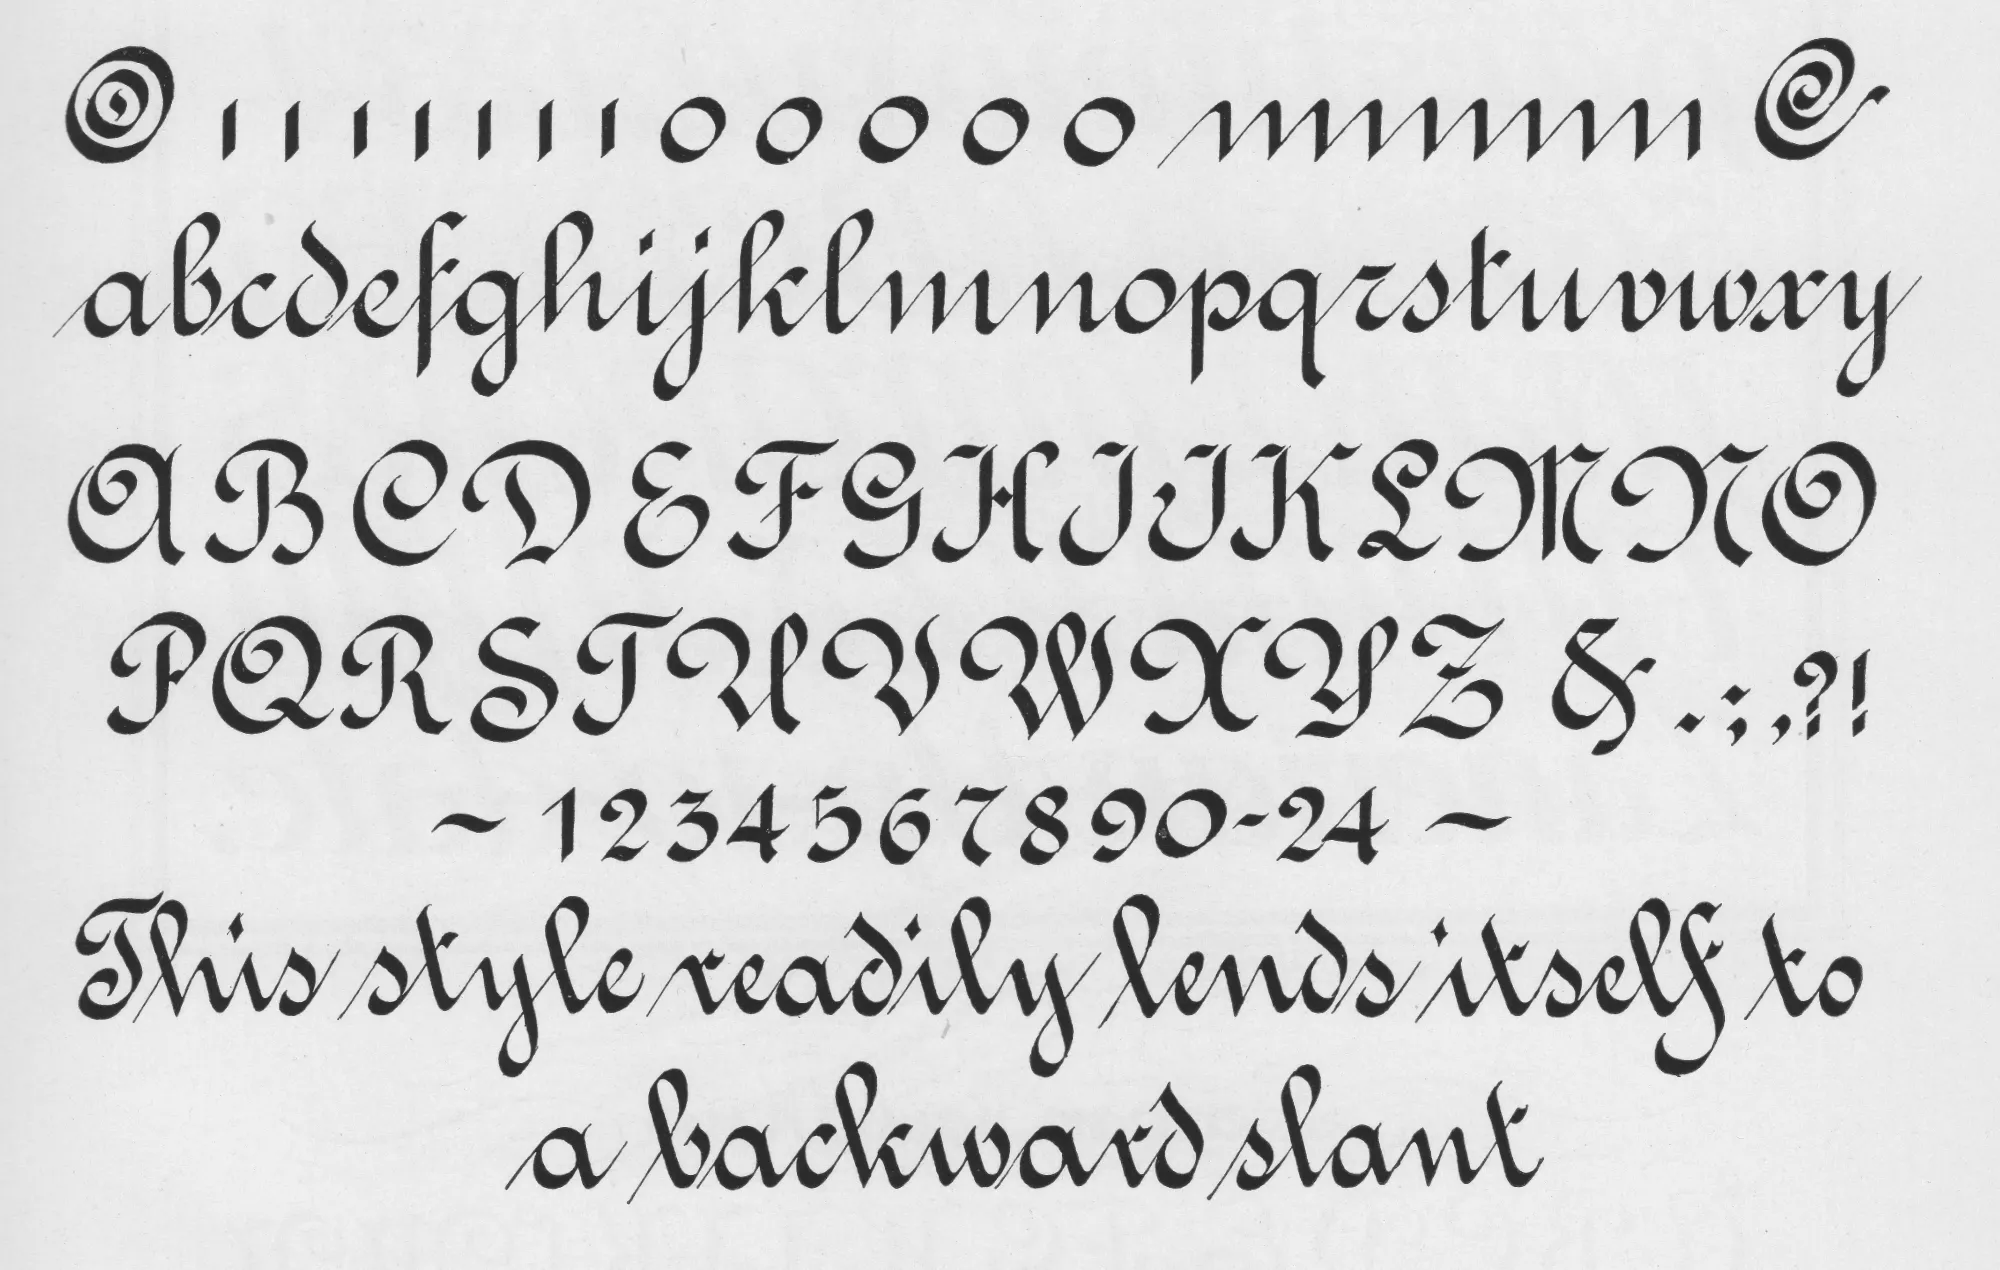 ı ı ı ı ı ı ı o o o o o
abcdefghijklmnopqrstuvwxy
ABCDEFGHIJKLMNO
PQRSTUVWXYZ & . ; , ? !
~ 1234567890-24 ~
This style readily lends itself to
a backward slant